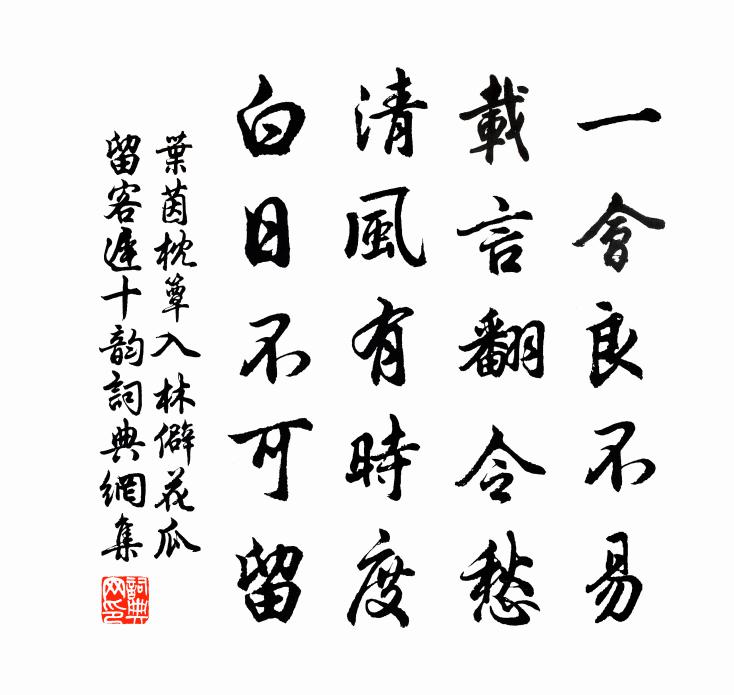 一會良不易
載言翻令愁
清風有時度
白日不可留
葉茵枕簟入林僻茶瓜
留客遲十韵詞典網集
詞典網印